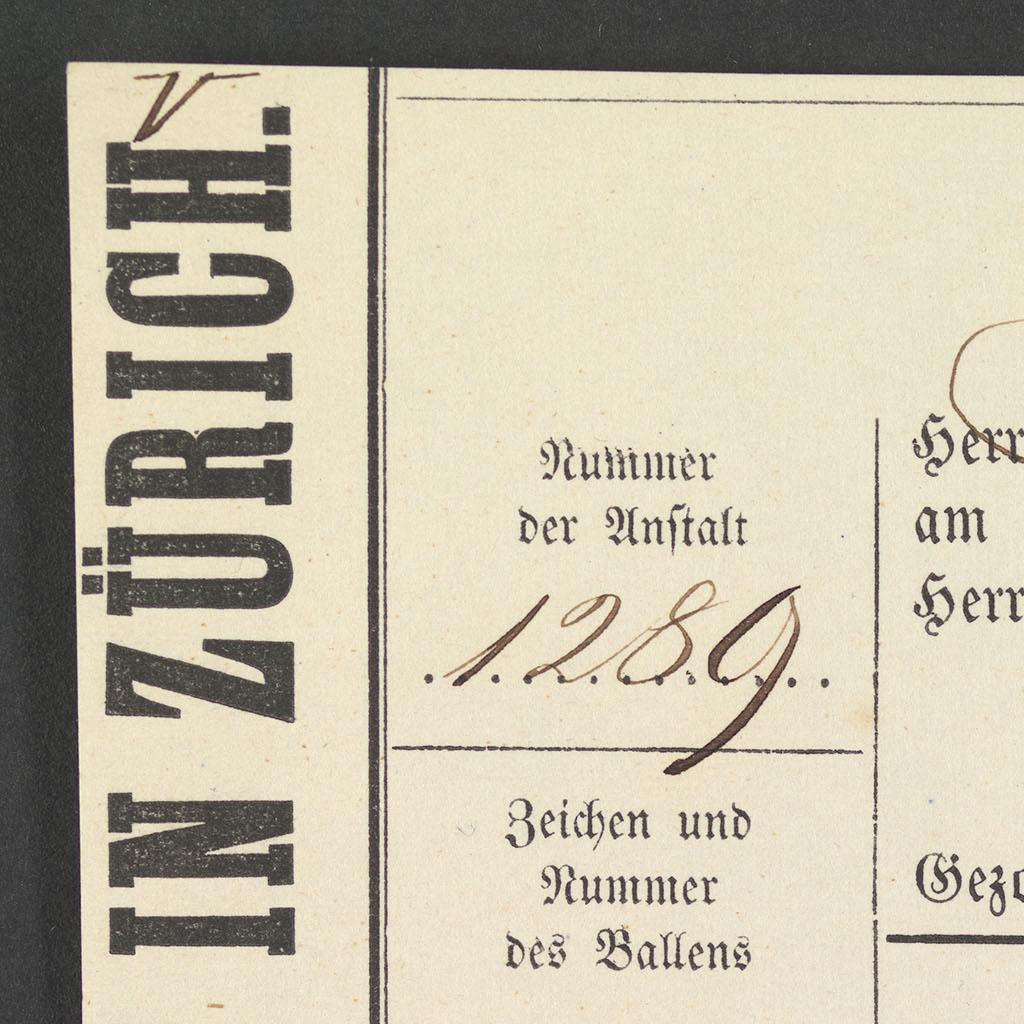 IN ZÜRICH.
Nummer
der Anstalt
1289
Zeichen und
Nummer
des Ballens
Herr
am
Herr